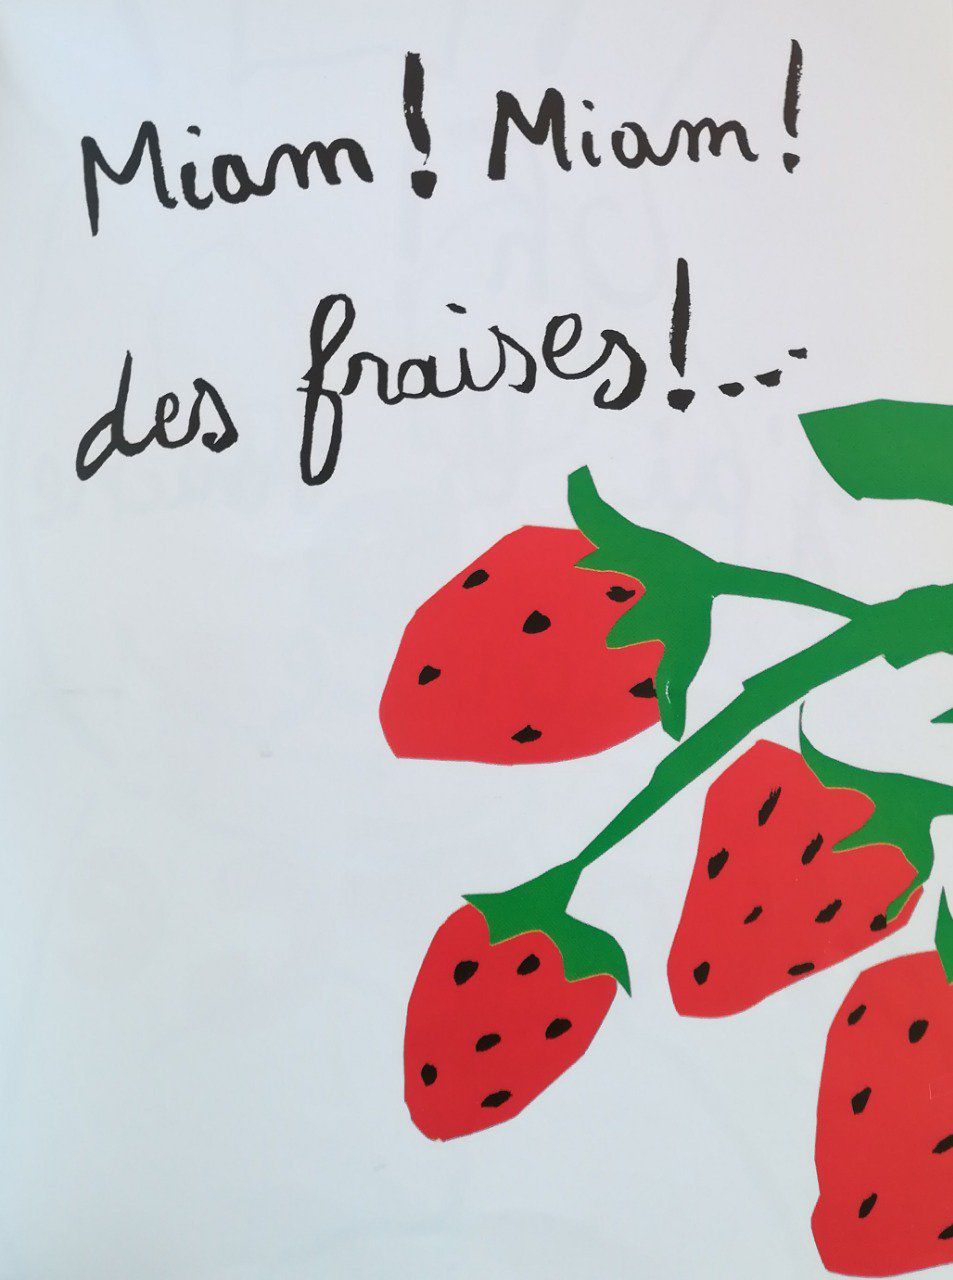 Miam! Miam!
des fraises!...